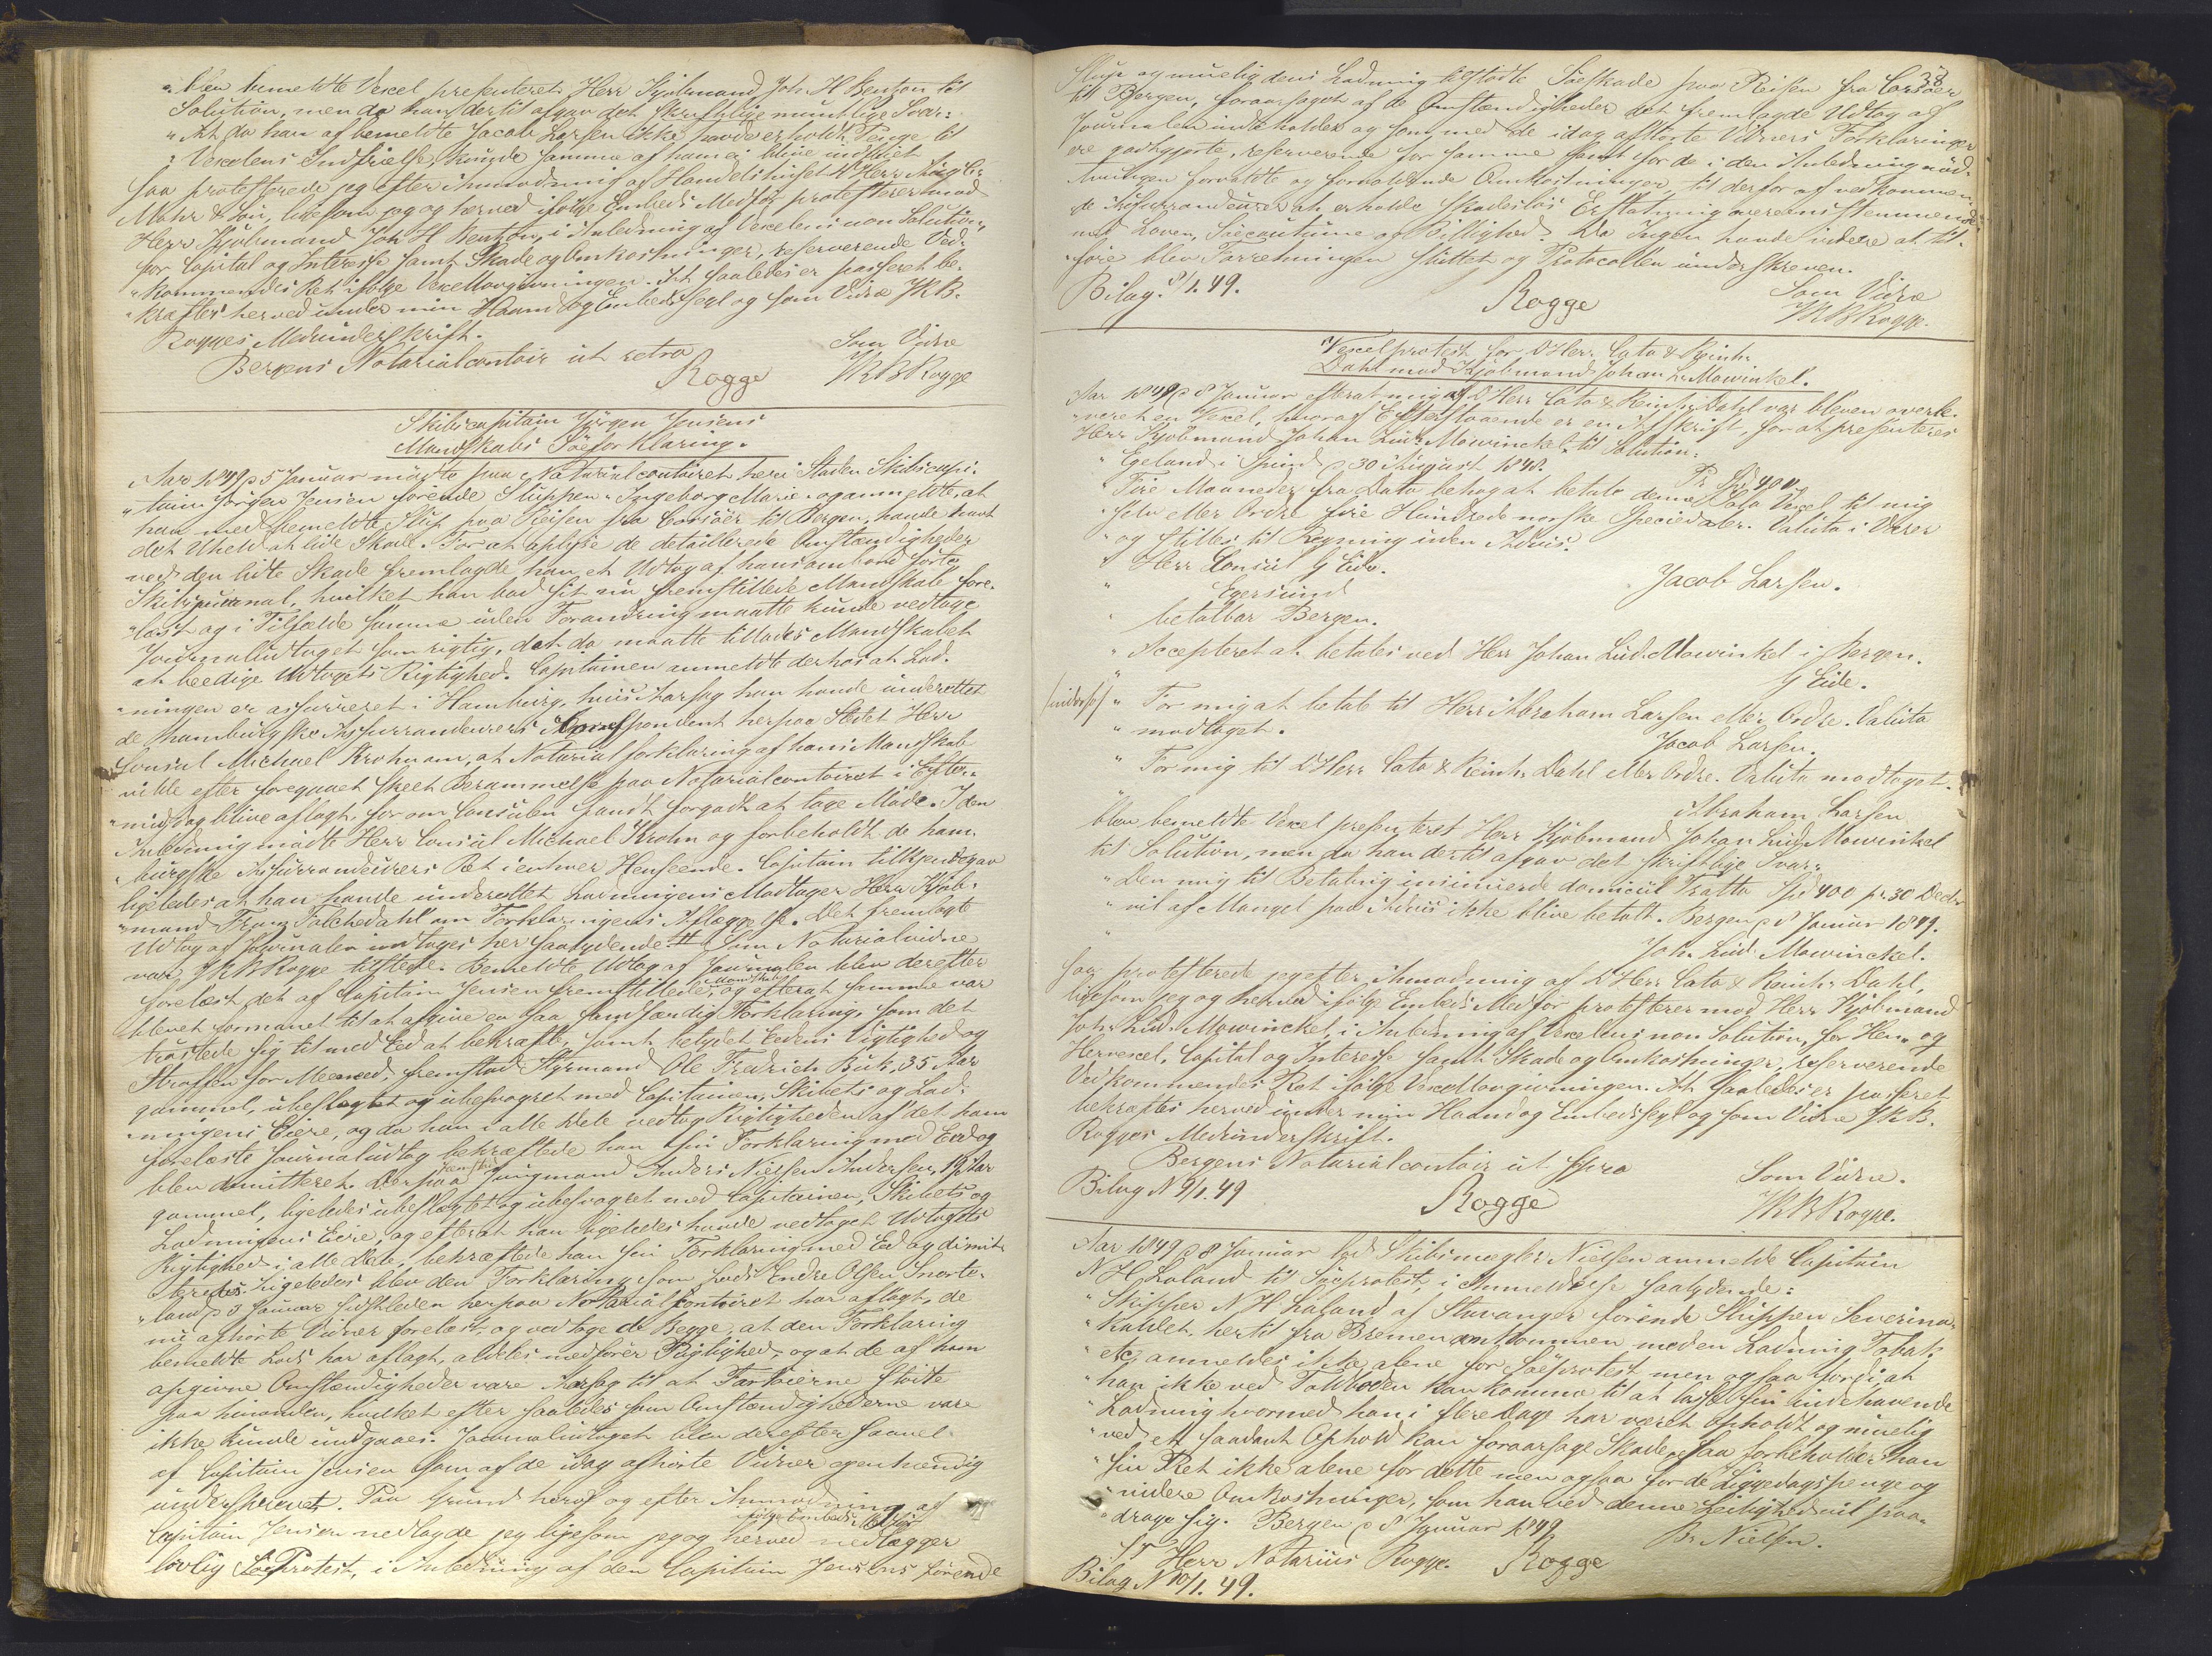 "blev bemeldte Vexel presenteret Herr Kjøbmand Joh. H Bentzon til
Solution, men da han dertil afgav det skriftlige mundtlige Svar:
"At da han af bemeldte Jacob Larsen ikke havde erholdt Penge til
"Vexelens Indfrielse kunde samme af ham ei blive indfriet
saa protesterede jeg efter Anmodning af Handelshuset DHerr
Mohr & Søn, ligesom jeg og herved ifølge Embeds Medfør protesterer mod
Herr Kjøbmand Joh H Bentzon, i Anledning af Vexelens non Solution,
for Capital og Interesse samt Skade og Omkostninger, reserverende Ved-
"kommendes Ret ifølge Vexellovgivningen. At saaledes er passeret be-
"kræftes herved under min Haand og Embedssegl og som Vidne JKB.
Rogges Medunderskrift.
Bergens Notarialcontoir ut retro
Som Vidne
Rogge JKBRogge
Skibscapitain Jørgen Jensens
Mandskabs Søeforklaring.
Aar 1849 d 5 Januar mødte paa Notarialcontoiret her i Staden Skibscapi-
"tain Jørgen Jensen førende Sluppen "Ingeborg Marie" og anmeldte, at
han med bemeldte Slup paa Reisen fra Corsöer til Bergen, havde havt
det Uheld at lide Skade. For at oplyse de detaillerede Omstændigheder
ved den lidte Skade fremlagde han et Udtog af hans ombord førte
Skibsjournal, hvilket han bad sit nu fremstillede Mandskab fore-
"læst og i Tilfælde samme uden Forandring maatte kunde vedtage
Journaludtoget som rigtig, det da maatte tillades Mandskabet
at beedige Udtogets Rigtighed. Capitainen anmeldte derhos at Lad-
"ningen er assureret i Hamburg, hvis Aarsag han havde underrettet
de Hamburgske Assurandeurers Correspondent herpaa Stedet Herr
Consul Michael Krohn om, at Notarialforklaring af hans Mandskab
vilde efter foregaaet skeet Berammelse paa Notarialcontoiret i Efter-
"middag blive aflagt, for om Consulen fandt forgodt at tage Møde. I den
Anledning mødte Herr Consul Michael Krohn og forbeholdt de ham-
"burgske Assurrandeurers Ret i enhver Henseende. Capitain tilkjendegav
ligeledes at han havde underrettet Ladningens Modtager Herr Kjøb-
"mand Franz Falchedahl om Forklaringens Aflæggelse. Det fremlagte
Udtog af Journalen indtages her saalydende # Som Notarialvidne
var JKBRogge tilstede. Bemeldte Udtog af Journalen blev derefter
forelæst det af Capitain Jensen fremstillede Mandskab, og efterat samme var
blevet formanet til at afgive en saa sandfærdig Forklaring, som det
trøstede sig til med Eed at bekræfte, samt betydet Eedens Vigtighed og
Straffen for Meeneed, fremstod Styrmand Ole Fredrich Buk, 35 Aar
gammel, ubeslægtet og ubesvogret med Capitainen, Skibets og Lad-
"ningens Eiere, og da han i alle Dele vedtog Rigtigheden af det ham
forelæste Journaludtog bekræftede han sin Forklaring med Eed og
blev dimitteret. Derpaa fremstod Jungmand Anders Nielsen Andersen, 19 Aar
gammel, ligeledes ubeslægtet og ubesvogret med Capitainen, Skibets og
Ladningens Eiere, og efterat han ligeledes havde vedtaget Udtogets
Rigtighed i alle Dele, bekræftede han sin Forklaring med Eed og dimit-
teredes. Ligeledes blev den Forklaring som Lods Endre Olsen Snorte-
"land d 3 Januar sidstleden herpaa Notarialcontoiret har aflagt, de
nu afhørte Vidner forelæst, og vedtoge de Begge, at den Forklaring
bemeldte Lods har aflagt, aldeles medfører Rigtighed, og at de af ham
opgivne Omstændigheder vare Aarsag til at Fartøierne stødte
paa hinanden, hvilket efter saaledes som Omstændighederne vare
ikke kunde undgaaes. Journaludtoget blev derefter saavel
af Capitain Jensen som af de idag afhørte Vidner egenhændig
underskrevet. Paa Grund heraf og efter Anmodning af
Capitain Jensen nedlagde jeg ligesom jeg og herved ifølge Embeds Medfør nedlægger
lovlig Søe Protest, i Anledning af den Capitain Jensens førende
38
Slup og muelig dens Ladning tilstødte Søeskade paa Reisen fra Corsöer
til Bergen, foraarsaget af de Omstændigheder det fremlagde Udtog af
Journalen indeholder og som med de idag afhørte Vidners Forklaringer
ere godtgjorte, reserverende for samme samt for de i den Anledning nød-
"vendigen forvoldte og forvoldende Omkostninger, til derfor af vedkommen-
de Assurrandeurer at erholde skadesløs Erstatning overeensstemmende
med Loven, Søecoutume og Billighed. Da Ingen havde videre at til-
"føre blev Forretningen sluttet og Protocollen underskreven.
Bilag 8/1. 49.
Rogge
Som Vidne
JKBRogge.
Vexelprotest for DHerr Cato & Reinh.
Dahl mod Kjøbmand Johan L. Mowinkel.
Aar 1849 d 8 Januar efterat mig af DHerr Cato & Reinh. Dahl var bleven overle-
"veret en Vexel, hvoraf Efterstaaende er en Afskrift, for at presenteres
Herr Kjøbmand Johan Lud. Mowinckel til Solution:
" Egeland i Spind d 30 August 1848.
Pr Spd 400.
" Fire Maaneder fra Dato behag at betale denne Sola Vexel til mig
" selv eller Ordre fire Hundrede norske Speciedaler. Valuta i Varer
" og stilles til Regning uden Advis.
" Herr Consul G Eide.
Jacob Larsen.
" Egersund
" betalbar Bergen.
" Accepteret at betales ved Herr Johan Lud. Mowinkel i Bergen.
G Eide.
" For mig at betale til Herr Abraham Larsen eller Ordre. Valuta
" modtaget.
Jacob Larsen.
" For mig til DHerr Cato & Reinh. Dahl eller Ordre. Valuta modtaget.
Abraham Larsen
blev bemeldte Vexel presenteret Herr Kjøbmand Johan Lud. Mowinkel
til Solution, men da han dertil afgav det skriftlige Svar:
"Den mig til Betaling insinuerede domicil Tratte Spd 400 pr. 30 Decbr
" vil af Mangel paa Advis ikke blive betalt. Bergen d 8 Januar 1849.
Joh. Lud. Mowinckel.
saa protesterede jeg efter Anmodning af DHerr Cato & Reinh. Dahl,
ligesom jeg og herved ifølge Embeds Medfør protesterer mod Herr Kjøbmand
Joh. Lud. Mowinckel, i Anledning af Vexelens non Solution, for Hen- og
Hervexel, Capital og Interesse samt Skade og Omkostninger, reserverende
Vedkommendes Ret ifølge Vexellovgivningen. At saaledes er passeret
bekræftes herved under min Haand og Embedssegl og som Vidne JKB.
Rogges Medunderskrift.
Bergens Notarialcontoir ut supra
Som Vidne.
Bilag N 9/1. 49
Rogge
JKBRogge.
Aar 1849 d 8 Januar lod Skibsmægler Nielsen anmelde Capitain
N H Laland til Søeprotest, i Anmeldelse saalydende:
"Skipper N H Laland af Stavanger førende Sluppen Severina
"kaldet, hertil fra Bremen ankommen med en Ladning Tobak
"etc anmeldes ikke alene for Søeprotest men ogsaa fordi at
"han ikke ved Toldboden kan komme til at losse sin indehavende
"Ladning hvormed han i flere Dage har været opholdt og muelig
"ved et saadant Ophold kan foraarsage Skade og saa forbeholder han
"sin Ret ikke alene for dette men ogsaa for de Liggedagspenge og
"videre Omkostninger, som han ved denne Leilighed vil paa-
"drage sig. Bergen d 8 Januar 1849
Nielsen.
Herr Notarius Rogge. Rogge
Bilag N 10/1. 49.